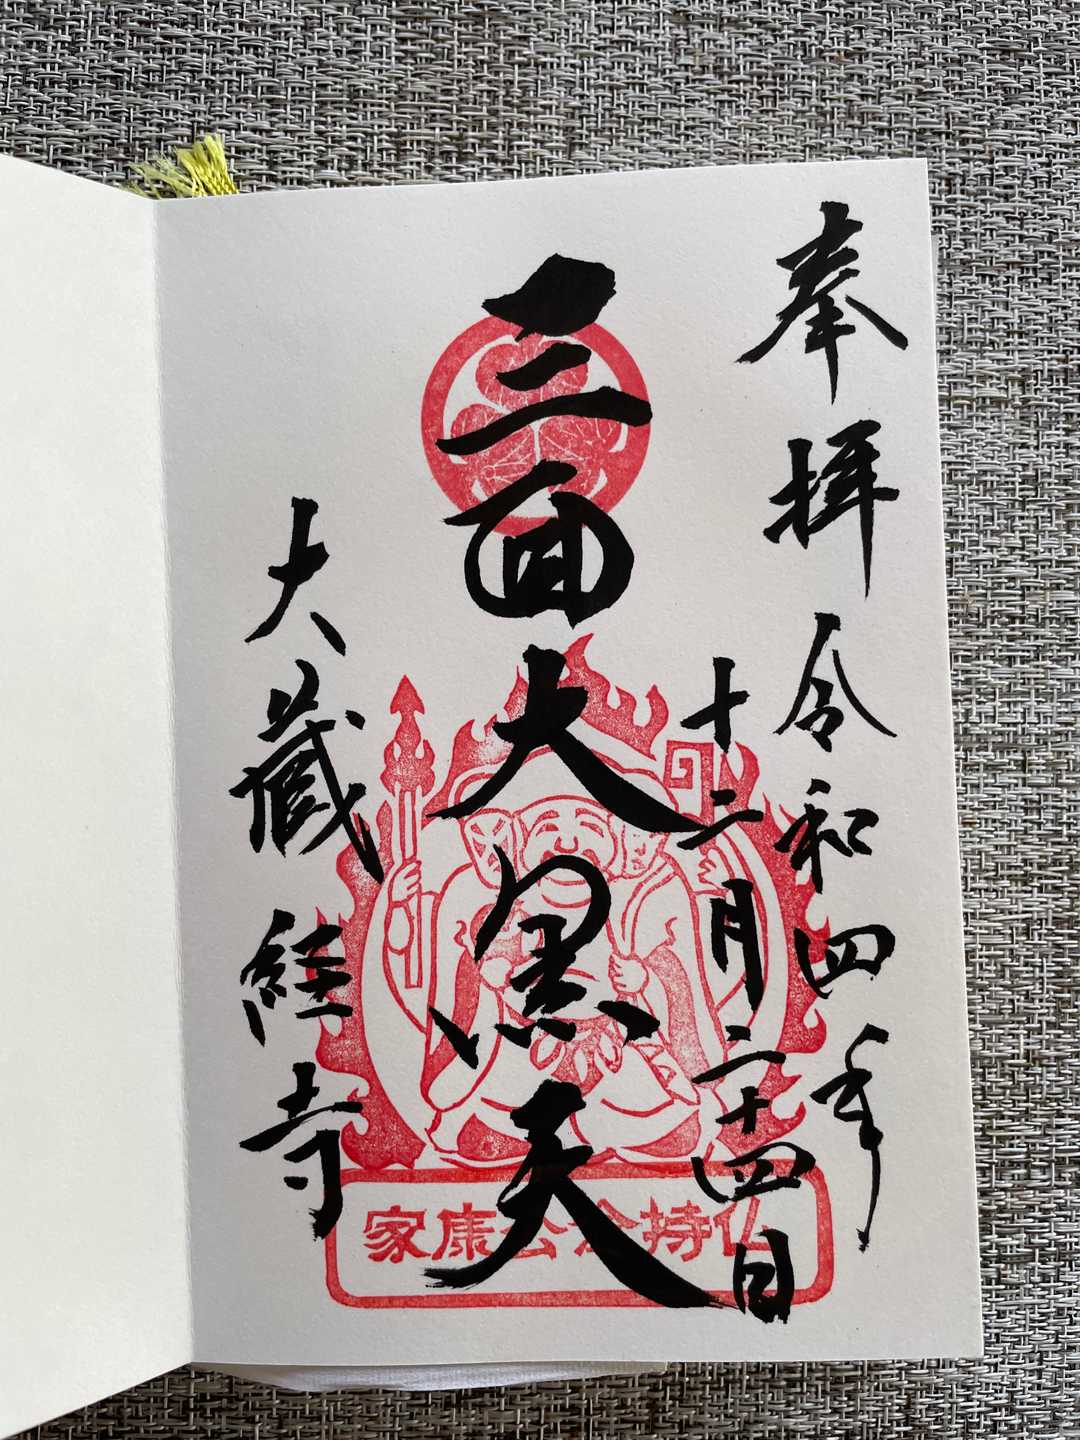 奉拝 令和四年
十二月二十四日
三面大黒天
家康公念持仏
大蔵経寺